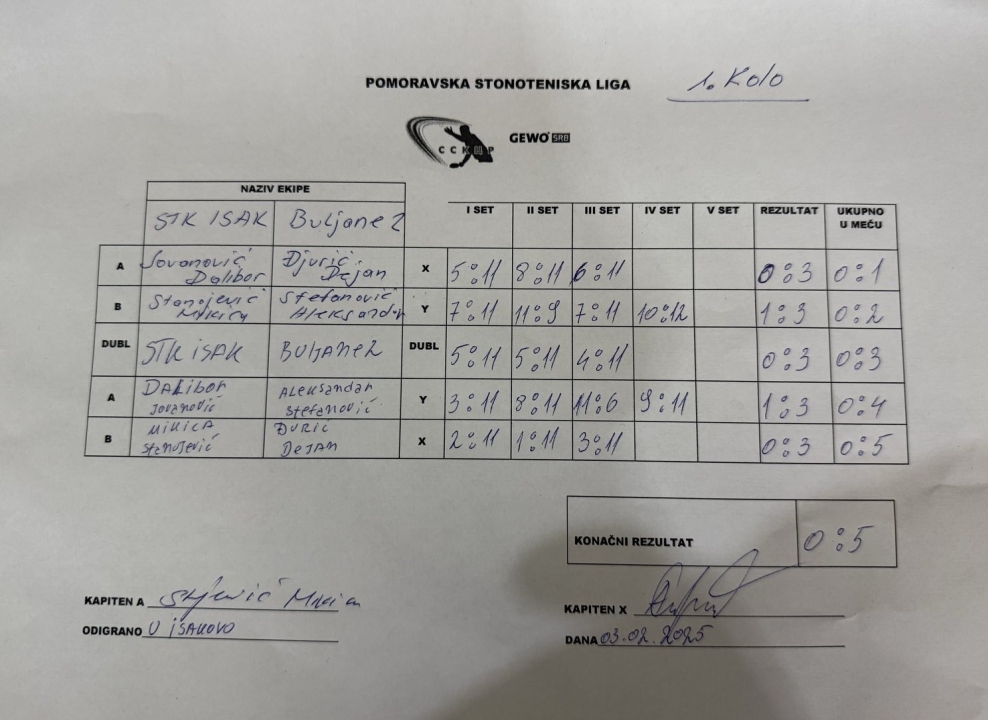 POMORAVSKA STONOTENISKA LIGA 1. Kolo
ССКПР GEWO SRB
NAZIV EKIPE
STK ISAK Buljane 2 I SET II SET III SET IV SET V SET REZULTAT UKUPNO U MEČU
A Jovanović Dalibor Djurić Dejan X 5:11 8:11 6:11 0:3 0:1
B Stanojević Mikica Stefanović Aleksandar Y 7:11 11:9 7:11 10:12 1:3 0:2
DUBL STK iSAK BULJANE 2 DUBL 5:11 5:11 4:11 0:3 0:3
A DALibor Jovanović ALeksandar Stefanović Y 3:11 8:11 11:6 9:11 1:3 0:4
B MIKICA Stanojević ĐURIĆ DeJAN X 2:11 1:11 3:11 0:3 0:5
KONAČNI REZULTAT 0:5
KAPITEN A
KAPITEN X
ODIGRANO U iSAKOVO
DANA 03.02.2025